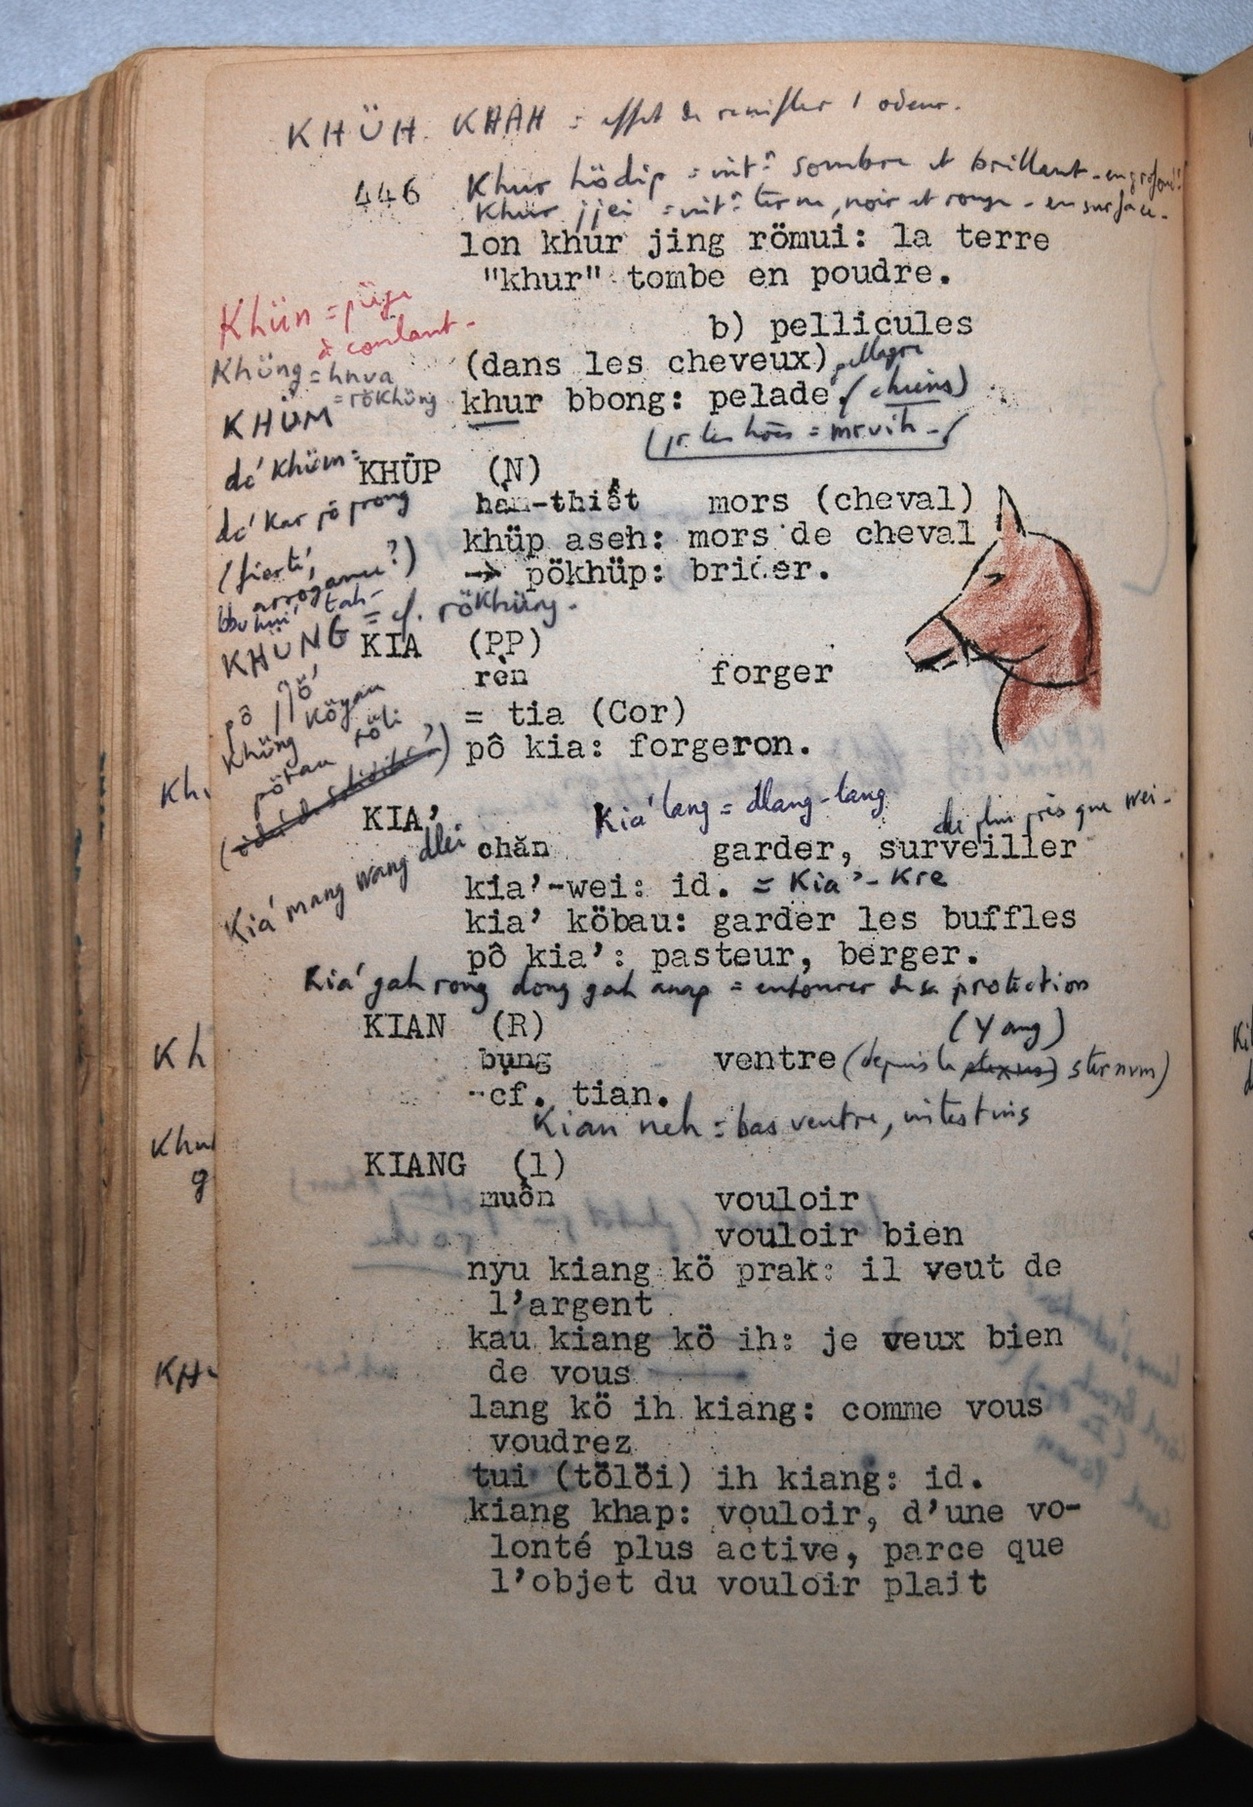 KHÜH KHAH = effet de renifler 1 odeur.
446
Khur hödip = sombre et brillant - en
Khur jjei = terne, noir et rouge - en surface -
lon khur jing römui: la terre
"khur" tombe en poudre.
b) pellicules
(dans les cheveux) pellagre
khur bbong: pelade. (chiens)
= mrvih -
Khün = piège
à coulant -
Khüng = hnva
= röKhüng
KHÜM
dô' Khüm =
dô' kar pô prong
(fierté,
arrogance?)
KHÜNG = cf. röKhüng.
pô
Khüng Köyau
pötau röli
KHŬP (N)
hàm-thiết mors (cheval)
khüp aseh: mors de cheval
→ pökhüp: brider.
KIA (PP)
rèn forger
= tia (Cor)
pô kia: forgeron.
Kia' lang = dlang-lang
de plus près que wei -
KIA'
chăn garder, surveiller
kia'-wei: id. = Kia'-Kre
kia' köbau: garder les buffles
pô kia': pasteur, berger.
Kia' mang wang dlei
Kia' gah rong dong gah anap = entourer de sa protection
KIAN (R)
(Yang)
bụng ventre (depuis le plexus) sternum)
-cf. tian.
Kian neh = bas ventre, intestins
KIANG (1)
muôn vouloir
vouloir bien
nyu kiang kö prak: il veut de
l'argent
kau kiang kö ih: je veux bien
de vous
lang kö ih kiang: comme vous
voudrez
tui (tölöi) ih kiang: id.
kiang khap: vouloir, d'une vo-
lonté plus active, parce que
l'objet du vouloir plait